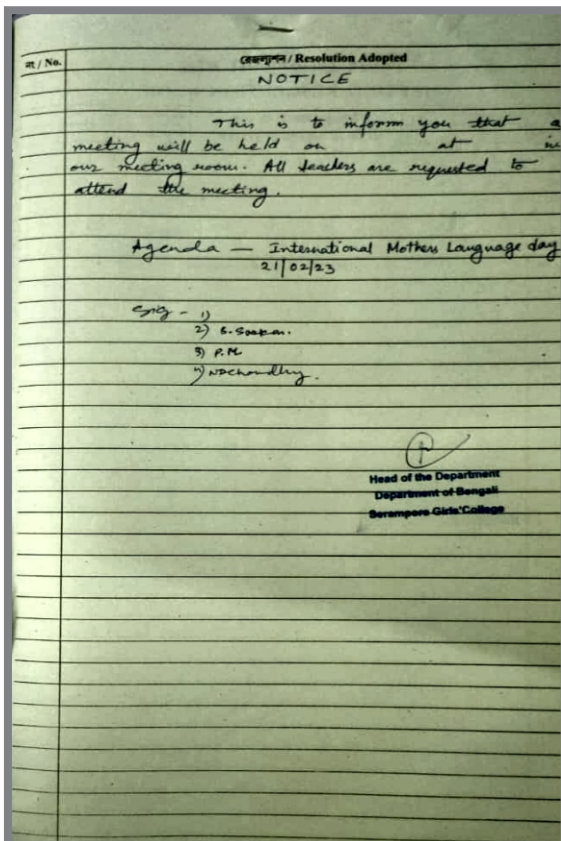 নং / No. রেজল্যুশন / Resolution Adopted
NOTICE
This is to inform you that a
meeting will be held on at in
our meeting room. All teachers are requested to
attend the meeting.
Agenda — International Mothers Language day
21/02/23
Sig - 1)
2) S. Sarkar.
3) P.M
4) NDChowdhry.
Head of the Department
Department of Bengali
Serampore Girls' College